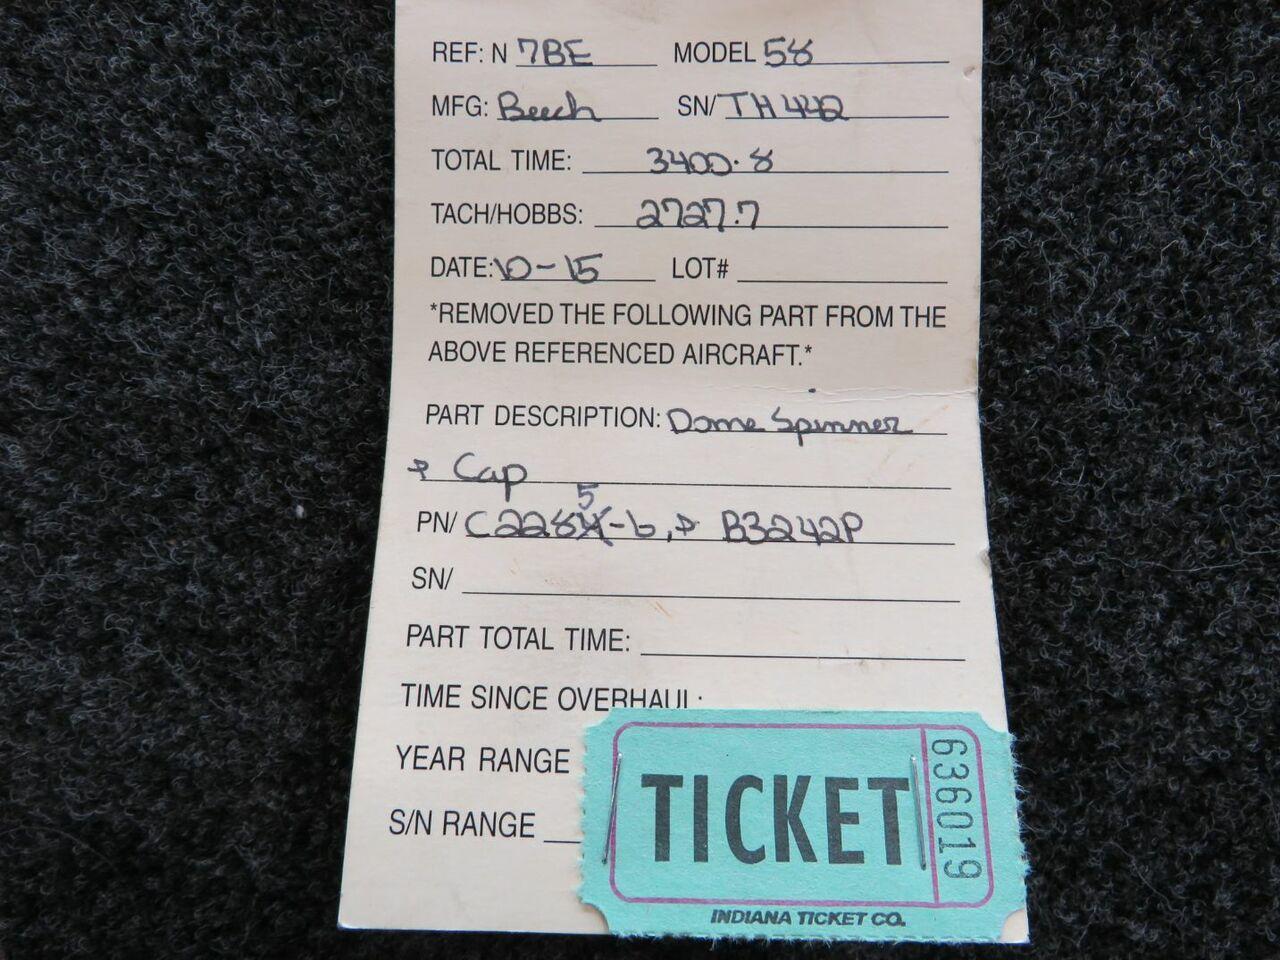 REF: N 7BE MODEL 58
MFG: Beech SN/ TH442
TOTAL TIME: 3400.8
TACH/HOBBS: 2727.7
DATE: 10-15 LOT#
*REMOVED THE FOLLOWING PART FROM THE
ABOVE REFERENCED AIRCRAFT.*
PART DESCRIPTION: Dome Spinner
& Cap
PN/ C2285-6, & B3242P
SN/
PART TOTAL TIME:
TIME SINCE OVERHAUL:
YEAR RANGE
S/N RANGE
TICKET
636019
INDIANA TICKET CO.